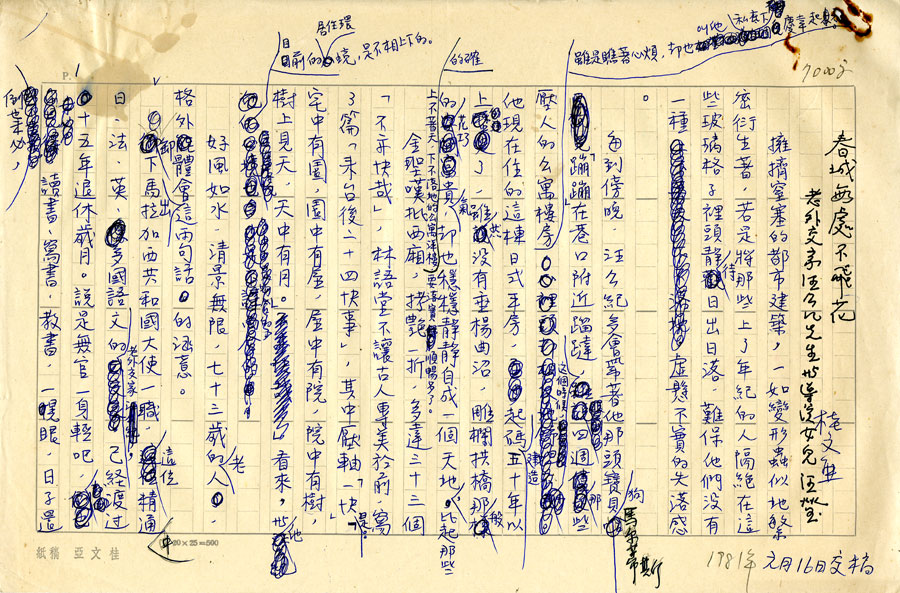 7000字
春城無處不飛花
桂文亞
老外交家汪公紀先生
擁擠窒塞的都市建築,一如變形蟲似地繁
密衍生著,若是將那些上了年紀的人隔絕在這
些玻璃格子裡頭靜待日出日落,難保他們沒有
一種虛懸不實的失落感
。
每到傍晚,汪公紀多會牽著他那頭寶貝狗
蹦蹦在巷口附近蹓躂
這個時候,
四週那些
壓人的公寓樓房
雖是瞧著心煩,却也
叫他
私底下
慶幸起來。
他現在住的這棟日式平房,起碼
建造
五十年以
上了,雖沒有垂楊曲沼,雕欄拱橋那般
花巧
氣
的富貴,却也穩穩靜靜自成一個天地。比起那些
上不著天、下不落地的公寓洋樓
的確
要清寧順暢多了。
金聖嘆批西廂,拷艷一折,多達三十三個
「不亦快哉」,林語堂不讓古人專美於前,寫
了篇「來台後二十四快事」,其中壓軸「一快」是:
宅中有園,園中有屋,屋中有院,院中有樹,
樹上見天,天中有月。
看來,
他
目前的
居住環
境,是不相上下的。
好風如水,清景無限,七十三歲的老人,
格外體會出這兩句話的涵意。
卸下馬拉加西共和國大使一職,這位精通
日、法、英、多國語文的
老外交家,
已經渡過
十五年退休歲月。說是無官一身輕吧
倒也未必,
讀書、寫書、教書,一晃眼,日子還
20×25=500
桂文亞 稿紙
1981年 元月16日交稿